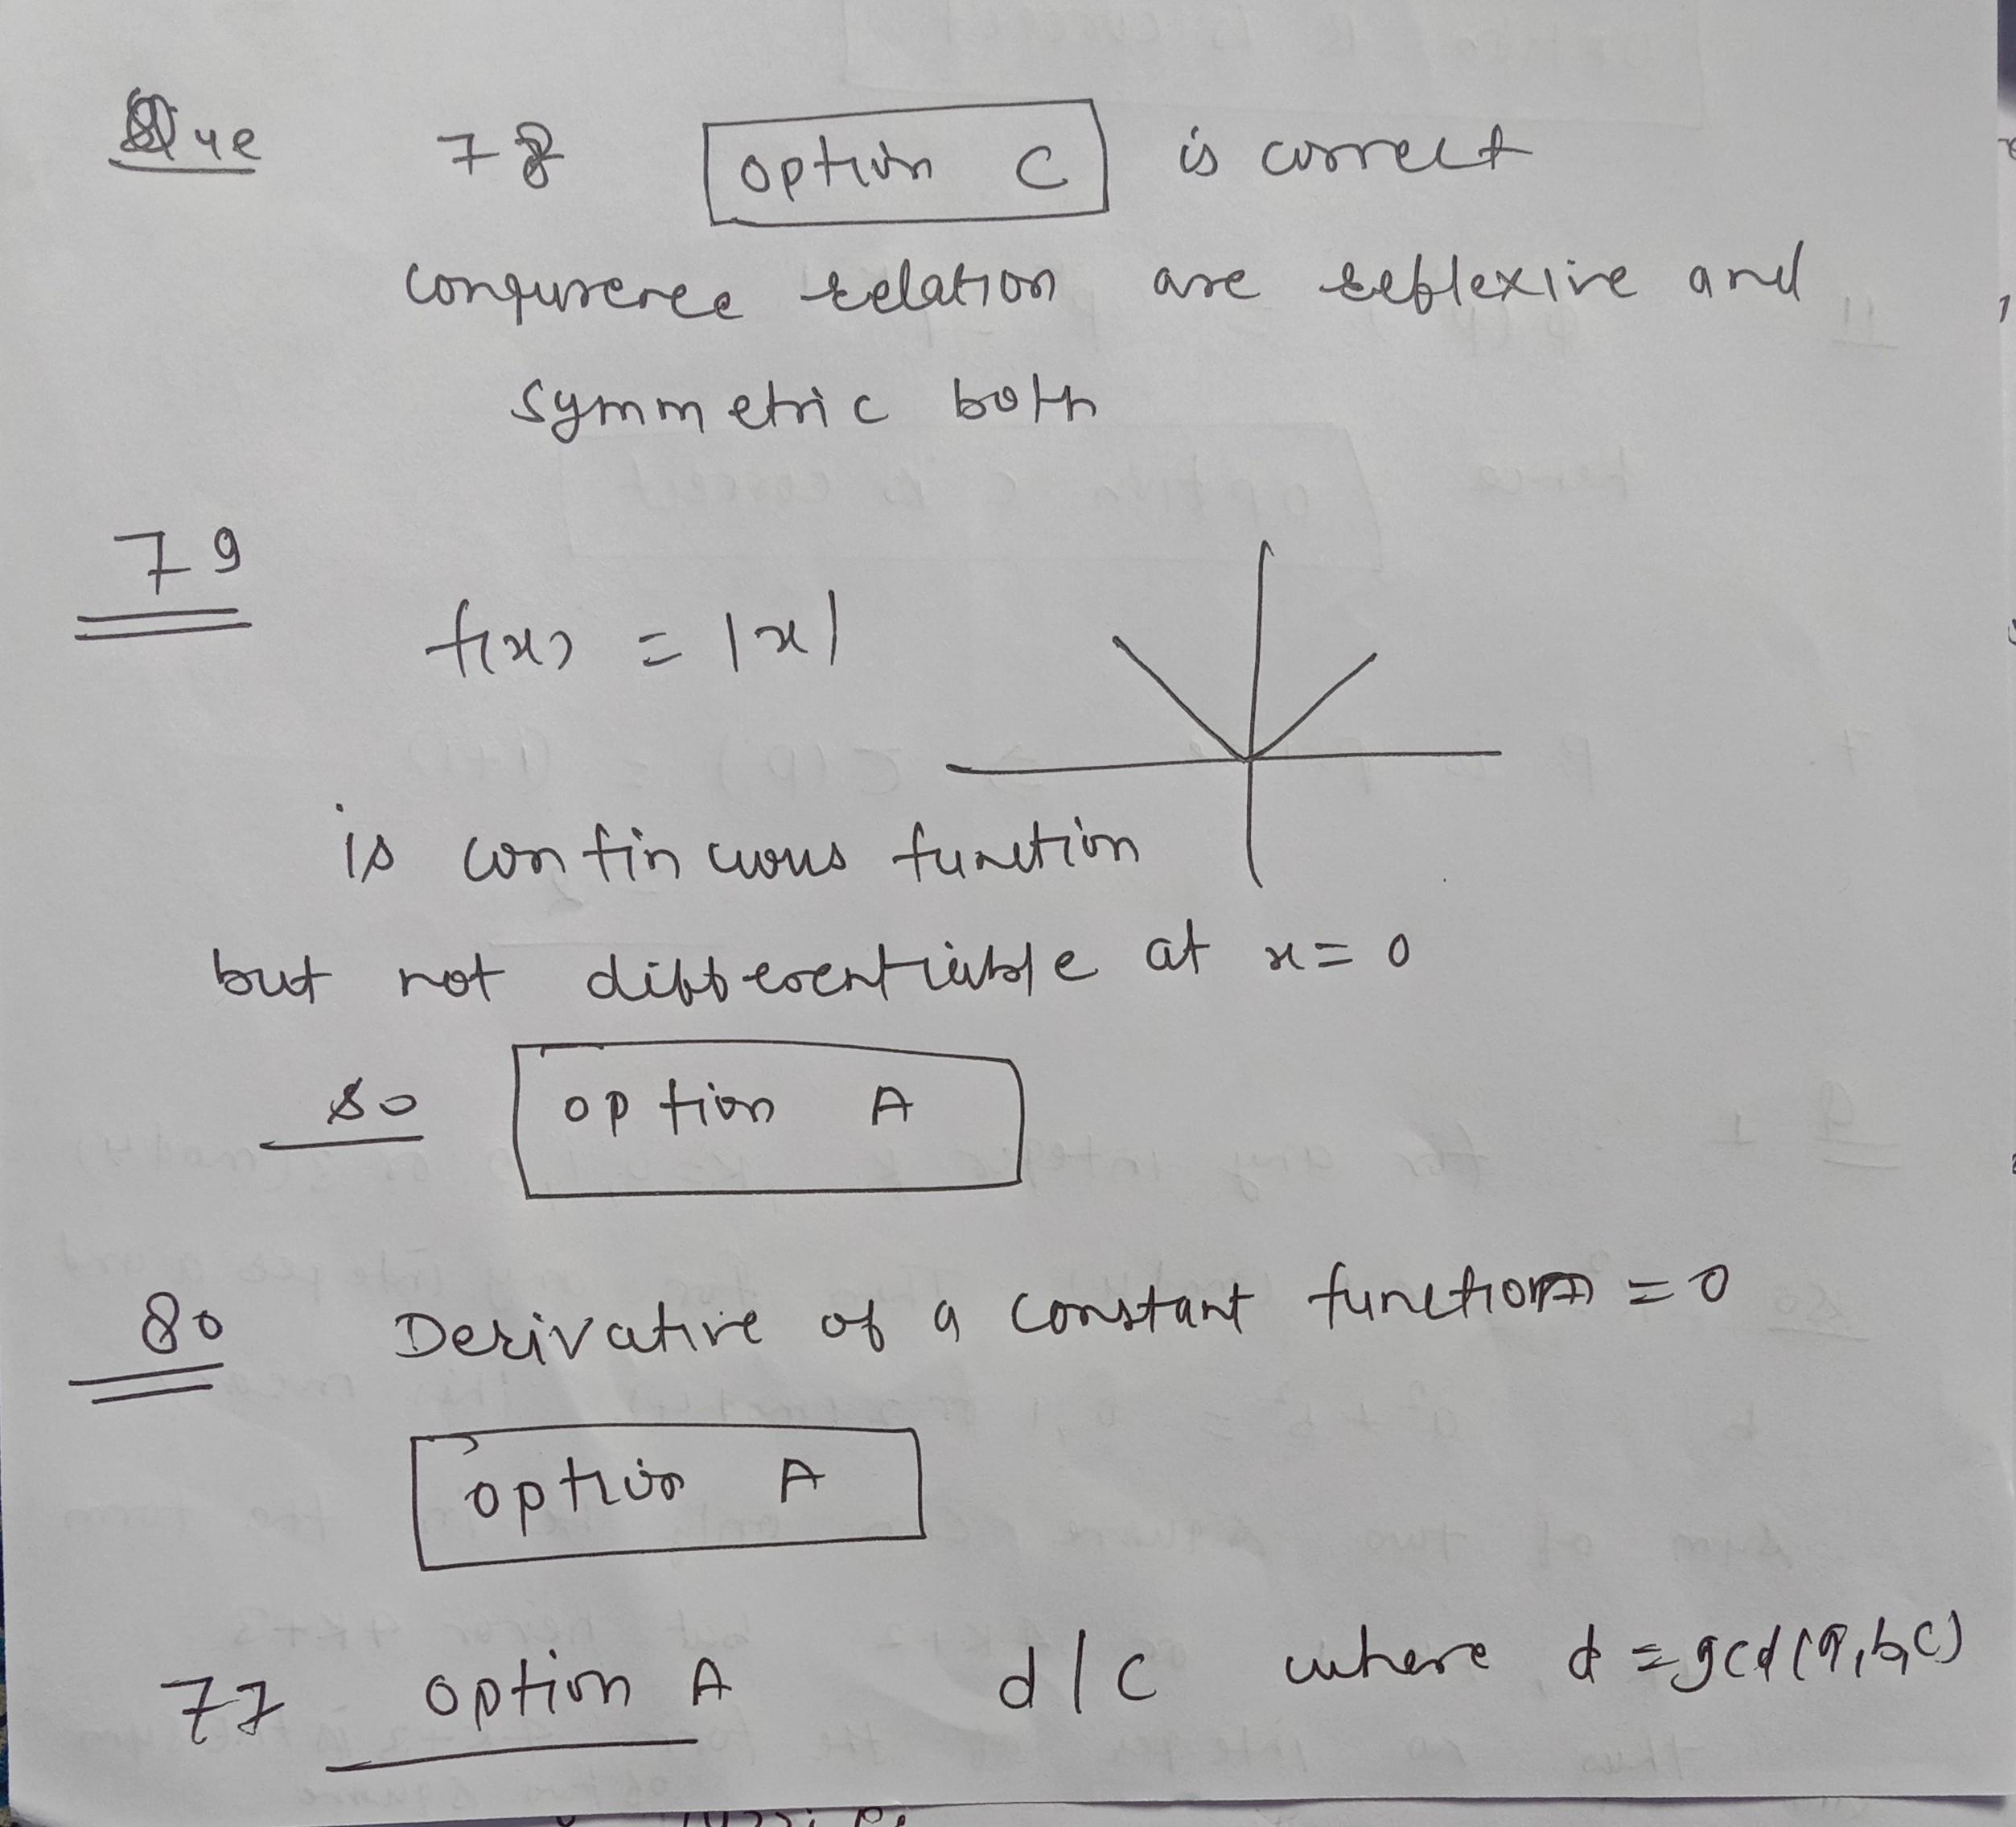 Que 78 option C is correct
conqurence relation are reflexive and
symmetric both
79
f(x) = |x|
is continuous function
but not differentiable at x = 0
80 option A
80 Derivative of a constant function = 0
option A
77 option A d/c where d = gcd(a,b,c)